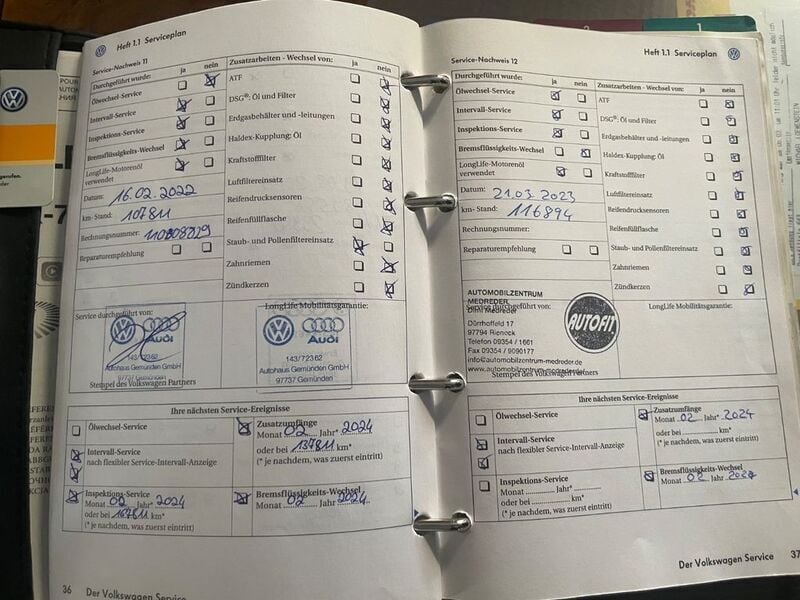 Heft 1.1 Serviceplan
Service-Nachweis 11
Durchgeführt wurde: ja nein
Ölwechsel-Service
Intervall-Service
Inspektions-Service
Bremsflüssigkeits-Wechsel
LongLife-Motorenöl
verwendet
Datum: 16.02.2022
km- Stand: 107811
Rechnungsnummer:
Reparaturempfehlung
Zusatzarbeiten - Wechsel von: ja nein
ATF
DSG®: Öl und Filter
Erdgasbehälter und -leitungen
Haldex-Kupplung: Öl
Kraftstofffilter
Luftfiltereinsatz
Reifendrucksensoren
Reifenfüllflasche
Staub- und Pollenfiltereinsatz
Zahnriemen
Zündkerzen
Service durchgeführt von:
LongLife Mobilitätsgarantie:
Audi
143/72362
Autohaus Gemünden GmbH
97737 Gemünden
Stempel des Volkswagen Partners
Audi
143/72362
Autohaus Gemünden GmbH
97737 Gemünden
Ihre nächsten Service-Ereignisse
Ölwechsel-Service
Intervall-Service
nach flexibler Service-Intervall-Anzeige
Inspektions-Service
Monat 02 Jahr* 2024
oder bei 167811 km*
(* je nachdem, was zuerst eintritt)
Zusatzumfänge
Monat 02 Jahr* 2024
oder bei 137811 km*
(* je nachdem, was zuerst eintritt)
Bremsflüssigkeits-Wechsel
Monat 02 Jahr 2024
36 Der Volkswagen Service
Heft 1.1 Serviceplan
Service-Nachweis 12
Durchgeführt wurde: ja nein
Ölwechsel-Service
Intervall-Service
Inspektions-Service
Bremsflüssigkeits-Wechsel
LongLife-Motorenöl
verwendet
Datum: 21.03.2023
km- Stand: 116894
Rechnungsnummer:
Reparaturempfehlung
Zusatzarbeiten - Wechsel von: ja nein
ATF
DSG®: Öl und Filter
Erdgasbehälter und -leitungen
Haldex-Kupplung: Öl
Kraftstofffilter
Luftfiltereinsatz
Reifendrucksensoren
Reifenfüllflasche
Staub- und Pollenfiltereinsatz
Zahnriemen
Zündkerzen
AUTOMOBILZENTRUM
MEDREDER
Service durchgeführt von:
Dimi Medreder
Dürrhoffeld 17
97794 Rieneck
Telefon 09354 / 1661
Fax 09354 / 9090177
info@automobilzentrum-medreder.de
www.automobilzentrum-medreder.de
Stempel des Volkswagen Partners
AUTOFIT
LongLife Mobilitätsgarantie:
Ihre nächsten Service-Ereignisse
Ölwechsel-Service
Intervall-Service
nach flexibler Service-Intervall-Anzeige
Inspektions-Service
Monat Jahr*
oder bei km*
(* je nachdem, was zuerst eintritt)
Zusatzumfänge
Monat 02 Jahr* 2024
oder bei km*
(* je nachdem, was zuerst eintritt)
Bremsflüssigkeits-Wechsel
Monat 02 Jahr
Der Volkswagen Service 37